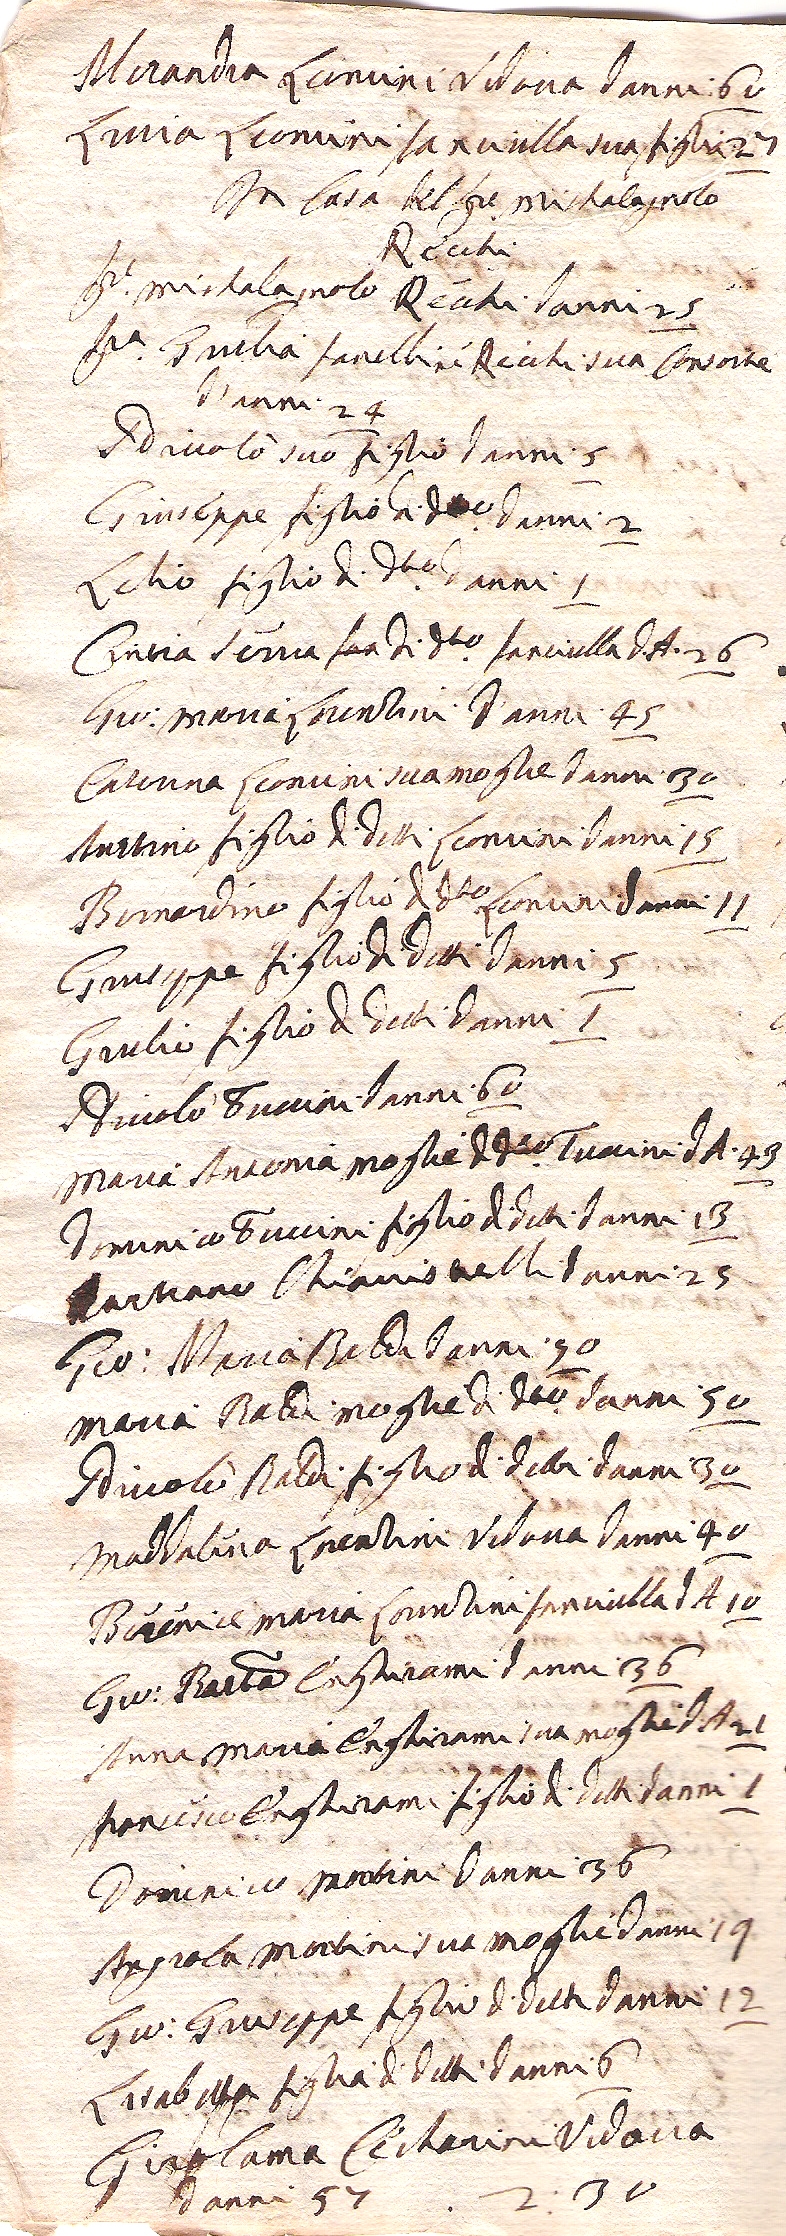 Merandra Leonini Vidova d anni 60
Livia Leonini fanciulla sua figlia 27
In Casa del Sre Michalagnolo
Recchi
Sre Michalagnolo Recchi d anni 25
Sra Giulia Recchi sua Consorte
d'anni 24
Nicolò suo figlio d anni 5
Giuseppe figlio di dto d anni 2
Lelio figlio di dto d anni 1
Cintia di dto fanciulla d A. 26
Gio: Maria Lorentini d anni 45
Caterina Leonini sua moglie d anni 30
figlio di detti Leonini d anni 15
Bernardino figlio di dto Leonini d anni 11
Giuseppe figlio di detti d anni 5
Giulio figlio di detti d anni 1
Nicolò Tuccini d anni 60
Maria Antonia moglie di dto Tuccini d A. 43
Domenico Tuccini figlio di detti d anni 13
d anni 25
Gio: Maria Baldi d anni 50
Maria Baldi moglie di dto d anni 50
Nicolò Baldi figlio di detti d anni 30
Maddalena Lorentini Vidova d anni 40
Berenice Maria Lorentini fanciulla d A 10
Gio: Batta Enghirami d anni 36
Anna Maria Enghirami sua moglie d A 21
Francesco Enghirami figlio di detti d anni 1
Domenico Martini d anni 36
Angiola Martini sua moglie d anni 19
Gio: Giuseppe figlio di detti d anni 12
Lisabetta figlia di detti d anni 6
Girolama Vidova
d anni 57 . 2: 30